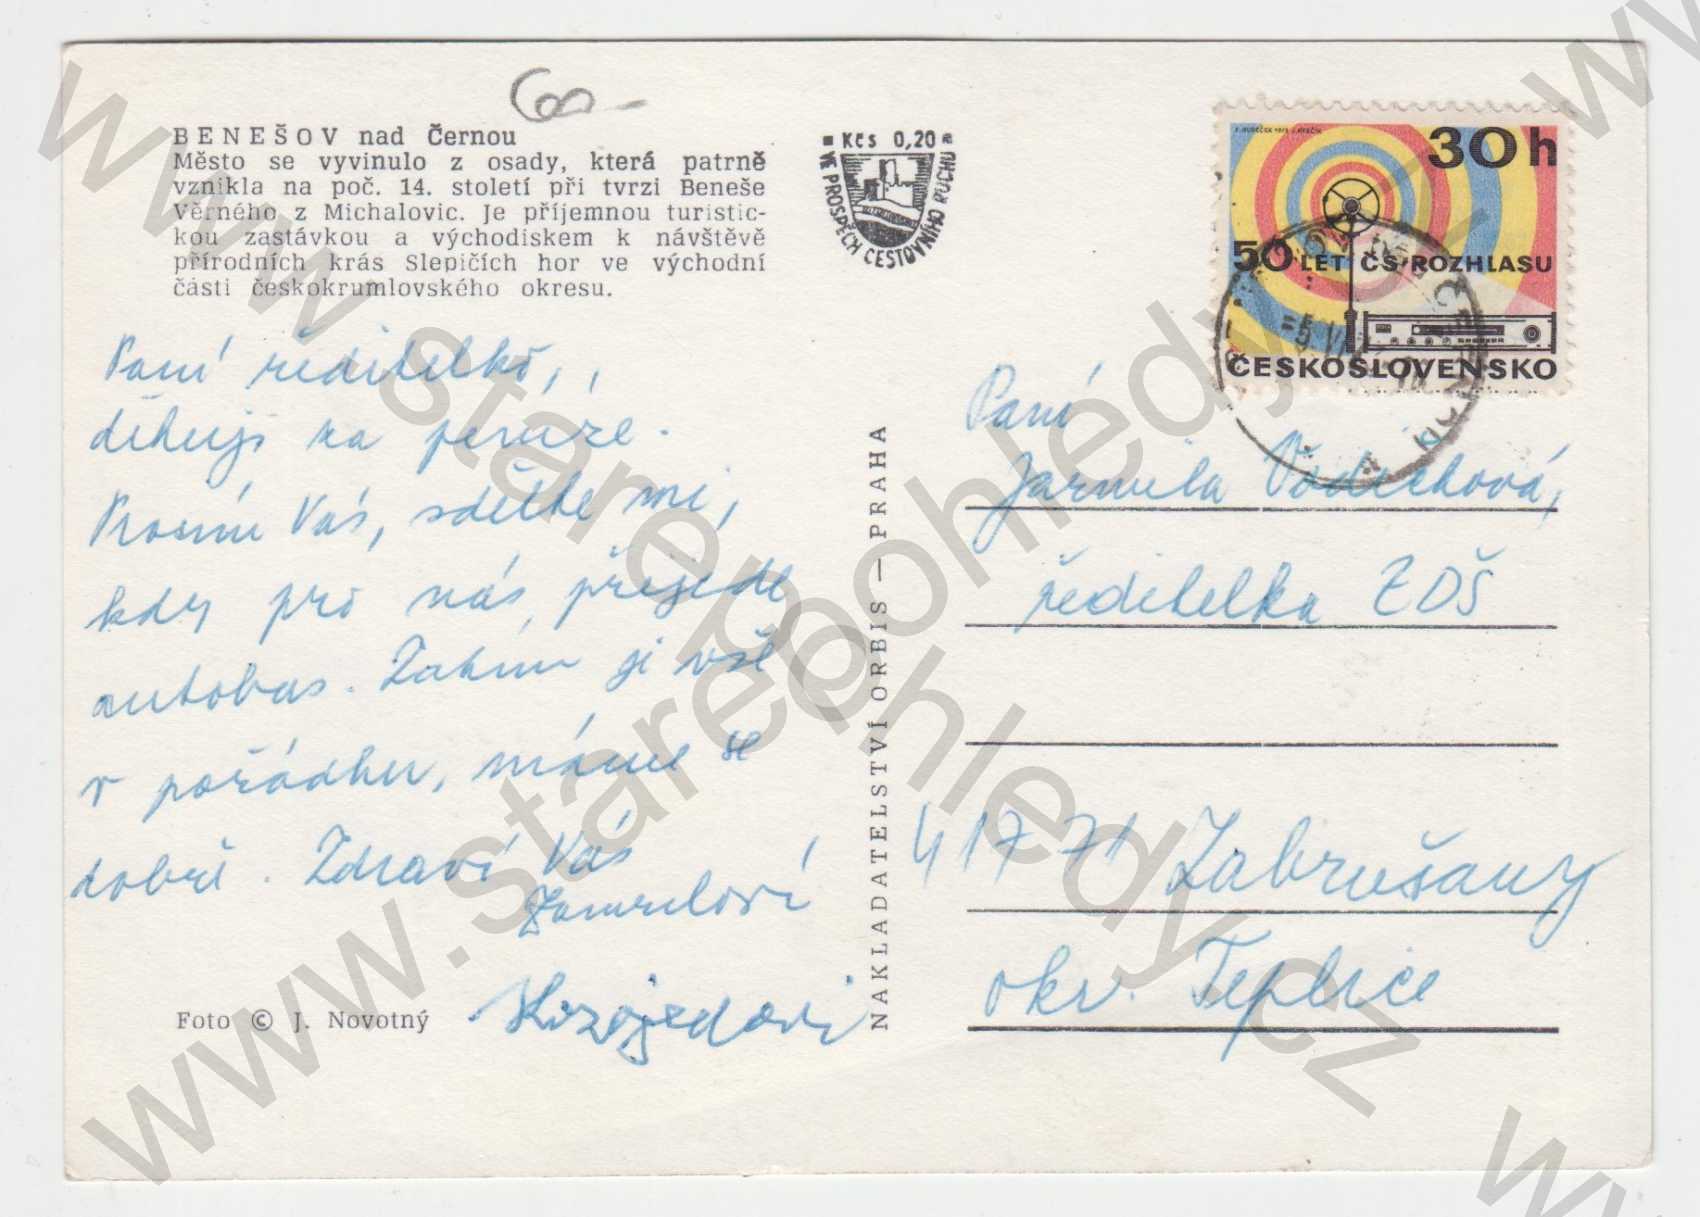 BENEŠOV nad Černou
Město se vyvinulo z osady, která patrně
vznikla na poč. 14. století při tvrzi Beneše
Věrného z Michalovic. Je příjemnou turistic-
kou zastávkou a východiskem k návštěvě
přírodních krás Slepičích hor ve východní
části českokrumlovského okresu.
Kčs 0,20
VE PROSPĚCH CESTOVNÍHO RUCHU
30h
50 LET ČS. ROZHLASU
ČESKOSLOVENSKO
Paní ředitelko,
děkuji za peníze.
Prosím Vás, sdělte mi,
kdy pro nás přijede
autobus. Zatím je vše
v pořádku, máme se
dobře. Zdraví Vás
Kozojedovi
Foto © J. Novotný
NAKLADATELSTVÍ ORBIS — PRAHA
Paní
Jarmila Vodičková,
ředitelka ZDŠ
417 71 Zabrušany
okr. Teplice
www.starepohledy.cz
www.starepohledy.cz